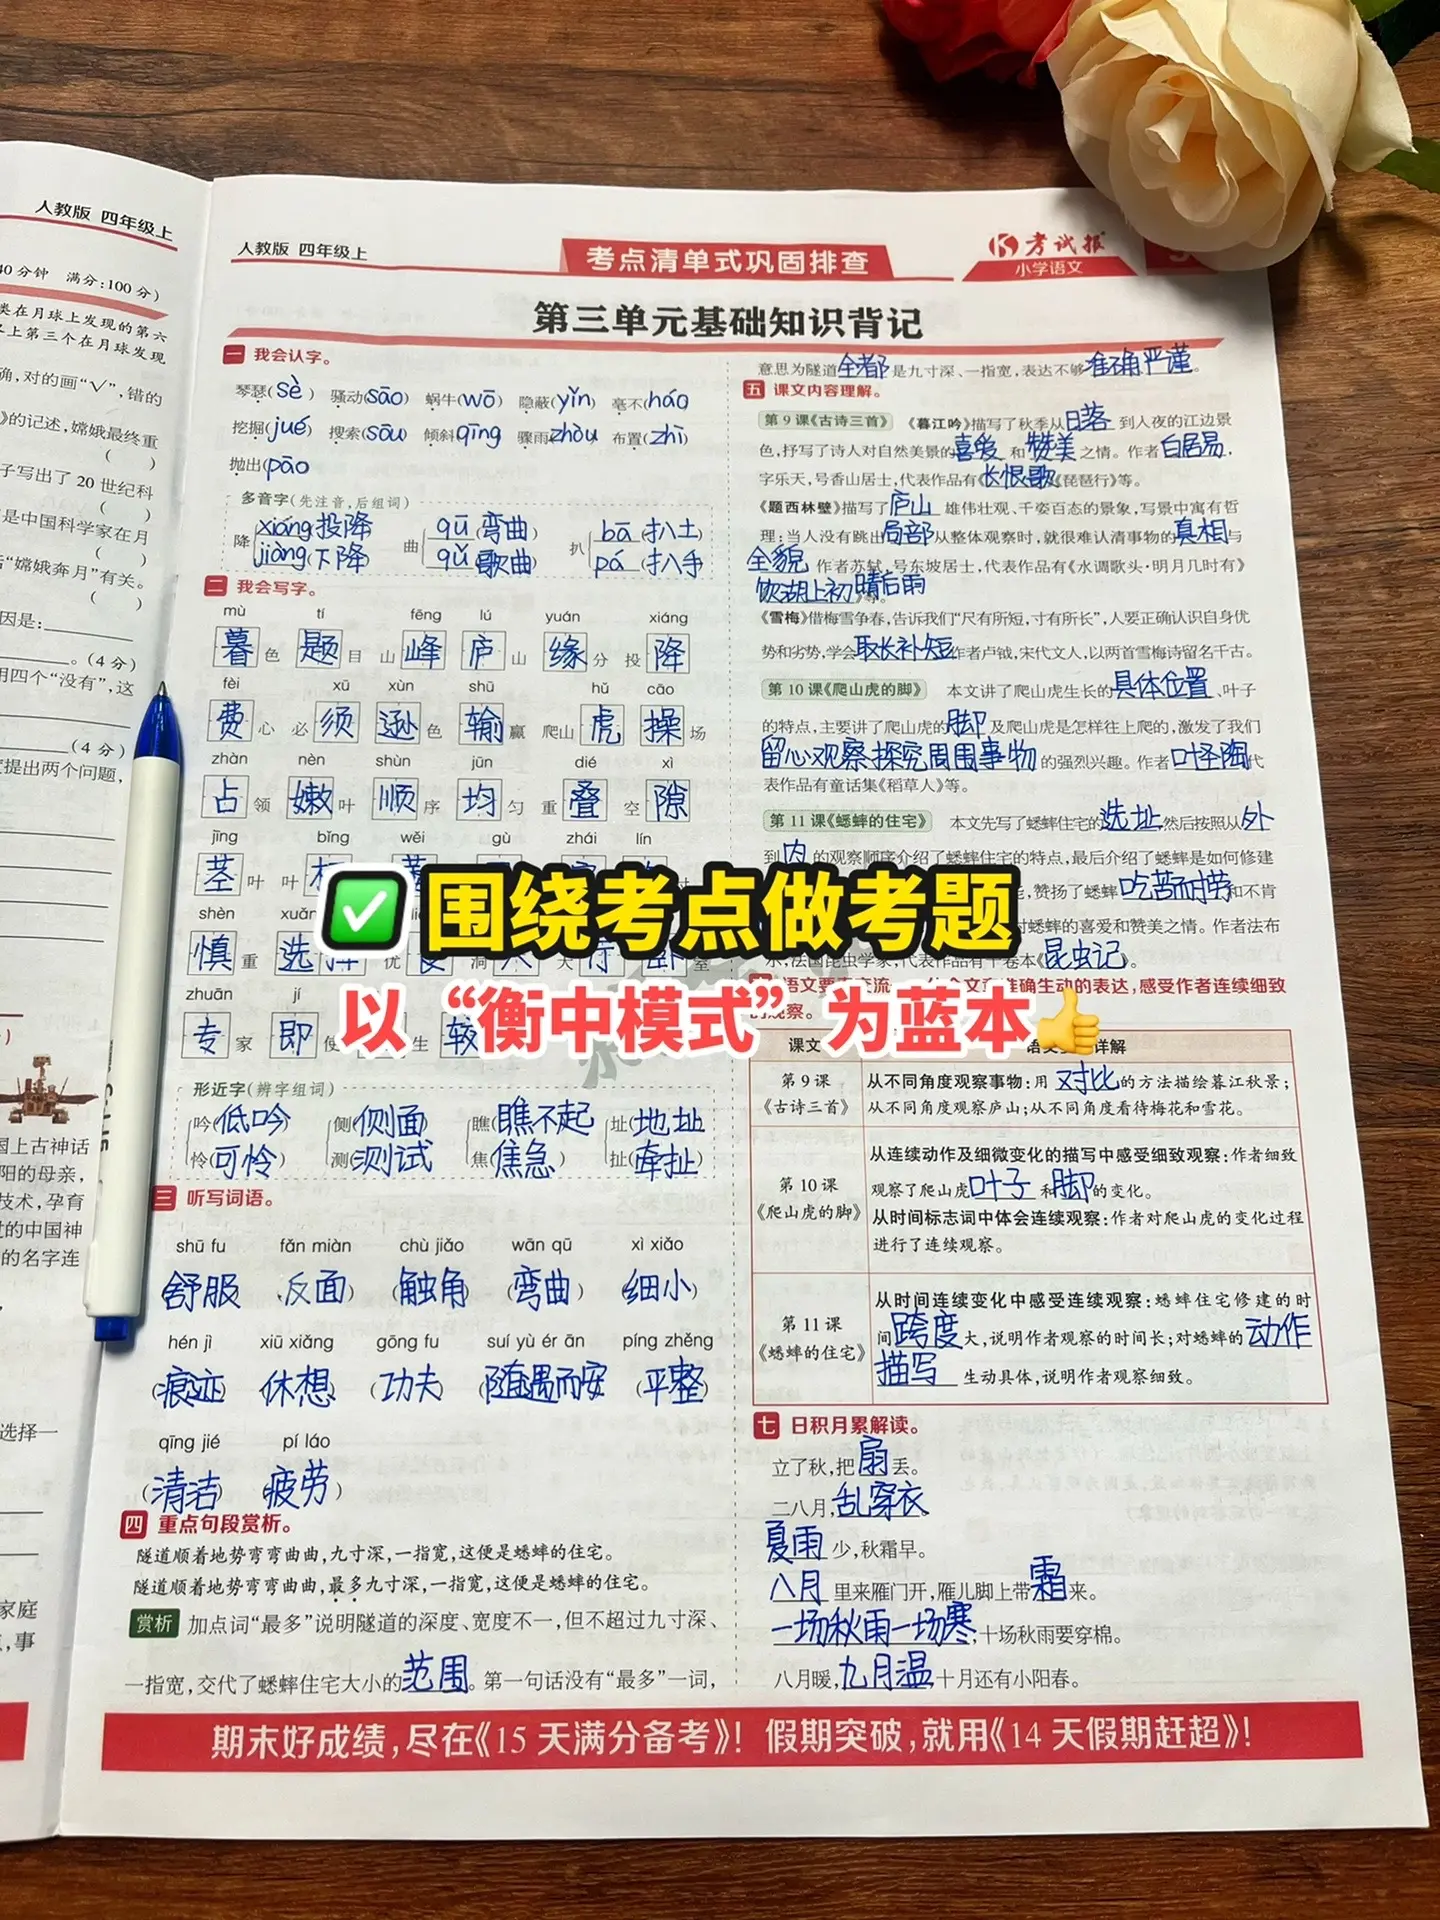 人教版 四年级上
40分钟 满分:100分)
类在月球上发现的第六
上第三个在月球发现
确,对的画“√”,错的
》的记述,嫦娥最终重
( )
子写出了20世纪科
( )
是中国科学家在月
( )
“嫦娥奔月”有关。
( )
因是:
。(4分)
用四个“没有”,这
(4分)
度提出两个问题,
国上古神话
阳的母亲,
技术,孕育
的中国神
的名字连
选择一
家庭
,事
人教版 四年级上
考点清单式巩固排查
考试报
小学语文
第三单元基础知识背记
一 我会认字。
琴瑟(sè) 骚动(sāo) 蜗牛(wō) 隐蔽(yǐn) 毫不(háo)
挖掘(jué) 搜索(sōu) 倾斜(qīng) 骤雨(zhòu) 布置(zhì)
抛出(pāo)
多音字(先注音,后组词)
降 xiáng(投降) 曲 qū(弯曲) 扒 bā(扒土)
jiàng(下降) qǔ(歌曲) pá(扒手)
二 我会写字。
mù tí fēng lú yuán xiáng
暮色 题目 山峰 庐山 缘分 投降
fèi xū xùn shū hǔ cāo
费心 必须 逊色 输赢 爬山虎 操场
zhàn nèn shùn jūn dié xì
占领 嫩叶 顺序 均匀 重叠 空隙
jīng bǐng wěi gù zhái lín
茎叶 叶
shèn xuǎn
慎重 选择 优
zhuān jí
专家 即使 生 较
形近字(辨字组词)
吟(低吟) 侧(侧面) 瞧(瞧不起) 址(地址)
怜(可怜) 测(测试) 焦(焦急) 扯(牵扯)
三 听写词语。
shū fu fǎn miàn chù jiǎo wān qū xì xiǎo
(舒服) (反面) (触角) (弯曲) (细小)
hén jì xiū xiǎng gōng fu suí yù ér ān píng zhěng
(痕迹) (休想) (功夫) (随遇而安) (平整)
qīng jié pí láo
(清洁) (疲劳)
四 重点句段赏析。
隧道顺着地势弯弯曲曲,九寸深,一指宽,这便是蟋蟀的住宅。
隧道顺着地势弯弯曲曲,最多九寸深,一指宽,这便是蟋蟀的住宅。
赏析 加点词“最多”说明隧道的深度、宽度不一,但不超过九寸深、
一指宽,交代了蟋蟀住宅大小的范围。第一句话没有“最多”一词,
意思为隧道全都是九寸深、一指宽,表达不够准确严谨。
五 课文内容理解。
第9课《古诗三首》 《暮江吟》描写了秋季从日落到入夜的江边景
色,抒写了诗人对自然美景的喜爱和赞美之情。作者白居易,
字乐天,号香山居士,代表作品有《长恨歌》《琵琶行》等。
《题西林壁》描写了庐山雄伟壮观、千姿百态的景象,写景中寓有哲
理:当人没有跳出局部从整体观察时,就很难认清事物的真相与
全貌。作者苏轼,号东坡居士,代表作品有《水调歌头·明月几时有》
《饮湖上初晴后雨》等。
《雪梅》借梅雪争春,告诉我们“尺有所短,寸有所长”,人要正确认识自身优
势和劣势,学会取长补短。作者卢钺,宋代文人,以两首雪梅诗留名千古。
第10课《爬山虎的脚》 本文讲了爬山虎生长的具体位置、叶子
的特点,主要讲了爬山虎的脚及爬山虎是怎样往上爬的,激发了我们
留心观察,探究周围事物的强烈兴趣。作者叶圣陶,代
表作品有童话集《稻草人》等。
第11课《蟋蟀的住宅》 本文先写了蟋蟀住宅的选址,然后按照从外
到内的观察顺序介绍了蟋蟀住宅的特点,最后介绍了蟋蟀是如何修建
,赞扬了蟋蟀吃苦耐劳和不肯
对蟋蟀的喜爱和赞美之情。作者法布
尔,法国昆虫学家,代表作品有十卷本《昆虫记》。
准确生动的表达,感受作者连续细致
的观察。
课文 详解
第9课《古诗三首》 从不同角度观察事物:用对比的方法描绘暮江秋景;
从不同角度观察庐山;从不同角度看待梅花和雪花。
第10课《爬山虎的脚》 从连续动作及细微变化的描写中感受细致观察:作者细致
观察了爬山虎叶子和脚的变化。
从时间标志词中体会连续观察:作者对爬山虎的变化过程
进行了连续观察。
第11课《蟋蟀的住宅》 从时间连续变化中感受连续观察:蟋蟀住宅修建的时
间跨度大,说明作者观察的时间长;对蟋蟀的动作
描写生动具体,说明作者观察细致。
七 日积月累解读。
立了秋,把扇丢。
二八月,乱穿衣。
夏雨少,秋霜早。
八月里来雁门开,雁儿脚上带霜来。
一场秋雨一场寒,十场秋雨要穿棉。
八月暖,九月温,十月还有小阳春。
期末好成绩,尽在《15天满分备考》!假期突破,就用《14天假期赶超》!
围绕考点做考题
以“衡中模式”为蓝本